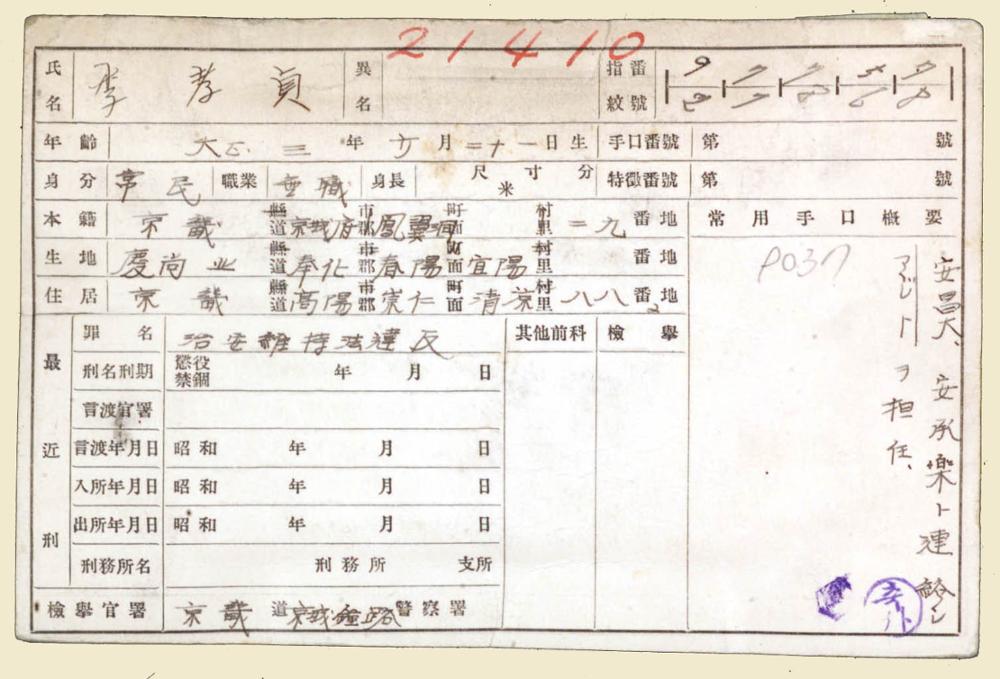 21410
氏名 李孝貞 異名 指紋番號
年齡 大正三年 月二十一日生 手口番號 第 號
身分 常民 職業 無職 身長 尺寸分 米 特徵番號 第 號
本籍 京畿 縣道 京城府 市郡 鳳翼洞 町面 村里 二九 番地 常用手口概要
生地 慶尚北 縣道 奉化 市郡 春陽 町面 宜陽 村里 番地
住居 京畿 縣道 高陽 市郡 崇仁 町面 清凉 村里 八八 番地
安昌大、安承樂ト連絡シ
ヲ担任、
P037
最近刑
罪名 治安維持法違反 其他前科 檢舉
刑名刑期 懲役 禁錮 年 月 日
言渡官署
言渡年月日 昭和 年 月 日
入所年月日 昭和 年 月 日
出所年月日 昭和 年 月 日
刑務所名 刑務所 支所
檢舉官署 京畿 道 京城鐘路 警察署